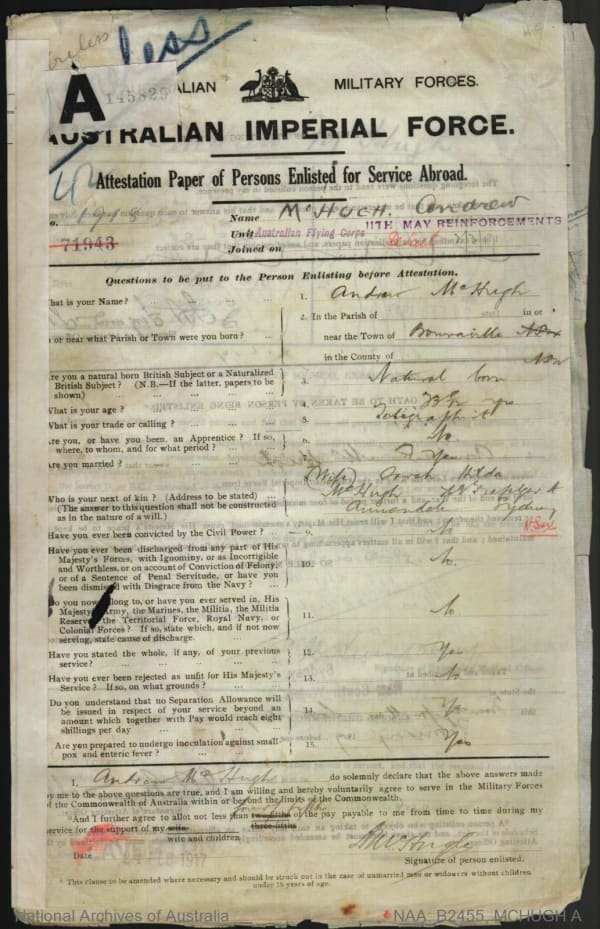 Wireless
A
145829
ALIAN MILITARY FORCES.
AUSTRALIAN IMPERIAL FORCE.
Attestation Paper of Persons Enlisted for Service Abroad.
71943
Name McHUGH. Andrew
Unit Australian Flying Corps 11TH MAY REINFORCEMENTS
Joined on
Questions to be put to the Person Enlisting before Attestation.
hat is your Name? ... ... ... 1. Andrew McHugh
2. In the Parish of in or
n or near what Parish or Town were you born? ... near the Town of Bowraville NSW
in the County of NSW
re you a natural born British Subject or a Naturalized
British Subject? (N.B.—If the latter, papers to be
shown) 3. Natural born
What is your age? 4.
What is your trade or calling? 5. Telegraphist
Are you, or have you been, an Apprentice? If so,
where, to whom, and for what period? 6. No
Are you married? 7. Yes
(Wife) Sarah Hilda
Who is your next of kin? (Address to be stated) 8. McHugh
(The answer to this question shall not be construed
as in the nature of a will.) Annandale Sydney
N.S.W
Have you ever been convicted by the Civil Power? 9. No
Have you ever been discharged from any part of His
Majesty's Forces, with Ignominy, or as Incorrigible
and Worthless, or on account of Conviction of Felony,
or of a Sentence of Penal Servitude, or have you
been dismissed with Disgrace from the Navy? 10. No.
Do you now belong to, or have you ever served in, His
Majesty's Army, the Marines, the Militia, the Militia
Reserve, the Territorial Force, Royal Navy, or
Colonial Forces? If so, state which, and if not now
serving, state cause of discharge 11. No
Have you stated the whole, if any, of your previous
service? 12. Yes
Have you ever been rejected as unfit for His Majesty's
Service? If so, on what grounds? 13. No
Do you understand that no Separation Allowance will
be issued in respect of your service beyond an
amount which together with Pay would reach eight
shillings per day 14. Yes
Are you prepared to undergo inoculation against small
pox and enteric fever? 15. Yes
I, Andrew McHugh do solemnly declare that the above answers made
by me to the above questions are true, and I am willing and hereby voluntarily agree to serve in the Military Forces
of the Commonwealth of Australia within or beyond the limits of the Commonwealth.
And I further agree to allot not less than two-fifths of the pay payable to me from time to time during my
three-fifths
service for the support of my wife
wife and children
AMcHugh
Signature of person enlisted.
Date FEB 1917
* This clause to be amended where necessary and should be struck out in the case of unmarried men or widowers without children
under 18 years of age.
National Archives of Australia
NAA: B2455, MCHUGH A